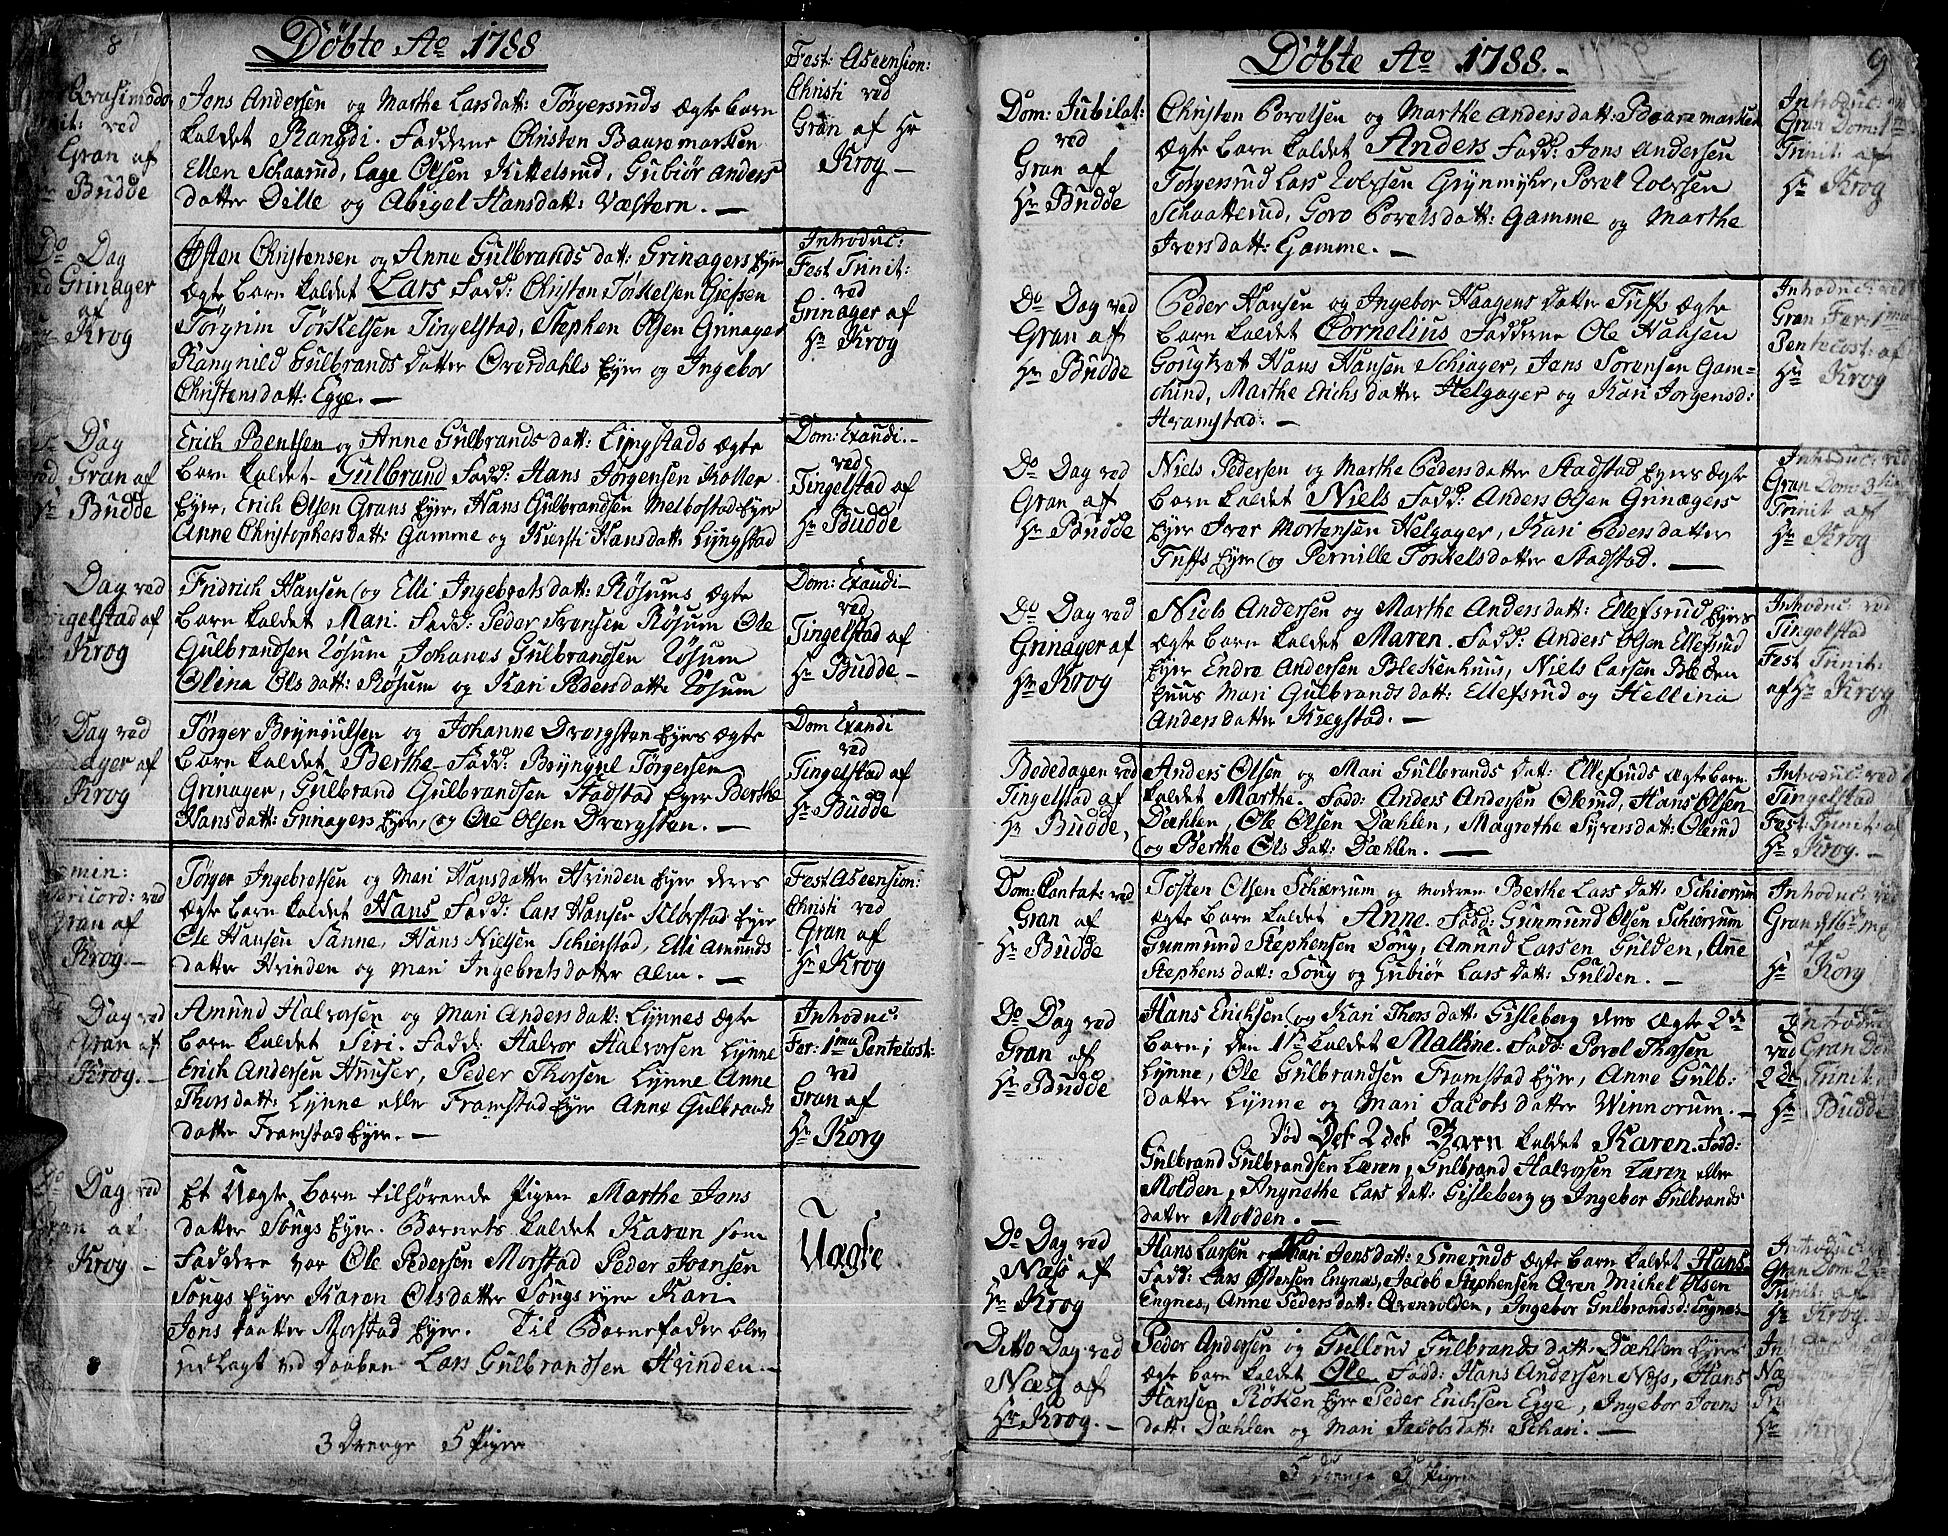 8
Döbte Ao 1788
Quasimodo
ved
Gran af
Budde
Jens Andersen og Marthe Larsdatt: Törgersruds Ægte barn
kaldet Rangdi. Fadderne Christen Baaremarken
Ellen Schaarud, Lage Olsen Kittelsrud, Gubiör Anders
datter Dille og Abigel Hansdatt: Væstern. —
Fest: Ascension:
Christi ved
Gran af Hr
Krog —
Do Dag
ved Grinager
af
Krog
Østen Christensen og Anne Gulbrands datt: Grinagers Eyer
Ægte barn kaldet Lars Fadd: Christen Törkelsen Giefsen
Törgrim Törkelsen Tingelstad, Stephen Olsen Grinager
Rangnild Gulbrands datter Overdahls Eyer og Ingebor
Christensdatt: Egge. —
Introduc:
Fest Trinit:
ved
Grinager af
Hr Krog
Dag
ved Gran af
Hr Budde
Erich Bentsen og Anne Gulbrands datt: Lyngstads Ægte
barn kaldet Gulbrand Fadd: Hans Jörgensen Rotter
Eyer, Erich Olsen Grans Eyer, Hans Gulbrandsen Melbostad Eyer
Anne Christophersdatt: Gamme og Kiersti Hansdatt: Lyngstad
Dom: Exaudi. —
ved
Tingelstad af
Hr Budde
Dag ved
Tingelstad af
Krog
Fridrich Hansen og Elli Ingebretsdatt: Rösums Ægte
barn kaldet Mari. Fadd: Peder Iversen Rösum Ole
Gulbrandsen Rösum Johanes Gulbrandsen Rösum
Olina Olsdatt: Rösum og Kari Pedersdatter Rösum
Dom: Exaudi —
ved
Tingelstad af
Hr Budde —
Dag ved
Grinager af
Krog
Törger Bryngulsen og Johanne Drorgsten Eyers Ægte
barn kaldet Berthe Fadd: Bryngul Törgersen
Grinager, Gulbrand Gulbrandsen Stadstad Eyer Berthe
Hansdatt: Grinagers Eyer, og Ole Olsen Drorgsten. —
Dom Exaudi
ved
Tingelstad af
Hr Budde
Domin:
Misericord: ved
Gran af
Krog. —
Törger Ingebretsen og Mari Hansdatter Hvinden Eyer deres
Ægte barn kaldet Hans Fadd: Lars Hansen Eyer
Ole Hansen Sanne, Hans Nielsen Schierstad, Elli Amunds
datter Hvinden og Mari Ingebretsdatter Alm. —
Fest Ascension:
Christi ved
Gran af
Hr Krog
Dag ved
Gran af
Krog. —
Amund Halvorsen og Mari Andersdatt: Lynnes Ægte
barn kaldet Siri. Fadd: Halvor Halvorsen Lynne
Erich Andersen Hnuser, Peder Thorsen Lynne Anne
Thorsdatt: Lynne eller Framstad Eyer Anne Gulbrands
datter Framstad Eyer. —
Introduc:
Fer: 1ma Pentecost:
ved
Gran af
Hr Korg
Do Dag ved
Gran af
Krog —
Et Uægte barn tilhørende Pigen Marthe Jens
datter Söngs Eyer. Barnets kaldet Karen som
Faddere var Ole Pedersen Morstad Peder Joensen
Söngs Eyer Karen Olsdatter Söngs Eyer Kari
Jens Daatter Morstad Eyer. Til Barnefader blev
udlagt ved Daaben Lars Gulbrandsen Hvinden. —
Uægte
3 Drenge 5 Piger
9
Döbte Ao 1788. —
Dom: Jubilat:
ved
Gran af
Hr Budde
Christen Povelsen og Marthe Andersdatt: Baaremarken
Ægte barn kaldet Anders Fadd: Jens Andersen
Törgersrud Lars Iversen Grynmyhr, Povel Iversen
Schaatterud, Goro Povelsdatt: Gamme og Marthe
Iversdatt: Gamme. —
Introduc:
Gran Dom: 1ma
Trinit: af
Hr Krog
Do Dag ved
Gran af
Hr Budde
Peder Hansen og Ingebor Haagens datter Tuffs Ægte
barn kaldet Cornelius Fadderne Ole Hansen
Gougtvet Hans Hansen Schiager, Jens Sorensen Gam=
Marthe Erichs datter Helgager og Kari Jorgensd:
Hramstad: —
Introduc: ved
Gran Fer: 1ma
Pentecost: af
Hr Krog
Do Dag ved
Gran af
Hr Budde
Niels Pedersen og Marthe Pedersdatter Stadstad Eyers Ægte
barn kaldet Niels Fadd: Anders Olsen Grinagers
Eyer Ivar Mortensen Helgager, Kari Pedersdatter
Tuffs Eyer og Pernille Torkelsdatter Stadstad. —
Introduc: ved
Gran Dom: 3tia
Trinit af
Hr Krog
Do Dag ved
Grinager af
Hr Krog
Niels Andersen og Marthe Andersdatt: Ellefsrud Eyers
Ægte barn kaldet Maren. Fadd: Anders Olsen Ellefsrud
Eyer Endre Andersen Blekenhuus, Niels Larsen Bleken
huus Mari Gulbrandsdatt: Ellefsrud og Hellina
Andersdatter Kiegstad. —
Introduc: ved
Tingelstad
Fest Trinit:
af Hr Krog
Bededagen ved
Tingelstad af
Hr Budde,
Anders Olsen og Mari Gulbrands datt: Ellefsruds Ægte barn
kaldet Marthe. Fadd: Anders Andersen Ölerud, Hans Olsen
Dæhlen, Ole Olsen Dæhlen, Magrethe Syversdatt: Ölerud
og Berthe Ols datt: Dæhlen. —
Introduc: ved
Tingelstad
Fest: Trinit: af
Hr Krog. —
Dom: Cantate ved
Gran af
Hr Budde
Tosten Olsen Schiærrum og moderen Berthe Lars datt: Schiærrum
Ægte barn kaldet Anne. Fadd: Gunmund Olsen Schiærrum
Gunmund Stephensen Söng, Amund Larsen Gulden, Anne
Stephens datt: Söng og Gubiör Lars datt: Gulden. —
Introduc: ved
Gran
af
Hr Korg
Do Dag ved
Gran af
Hr Budde
Hans Erichsen og Kari Thorsdatt: Gisleberg deres Ægte 2de
barn; den 1ste kaldet Mallene. Fadd: Povel Thorsen
Lynne, Ole Gulbrandsen Framstad Eyer, Anne Gulb:
datter Lynne og Mari Jacobsdatter Winnorum. —
Död Det 2det Barn kaldet Karen. Fadd:
Gulbrand Gulbrandsen Læren, Gulbrand Halvorsen Læren eller
Molden, Angnethe Lars datt: Gisleberg og Ingebor Gulbrands
datter Molden. —
Introduc:
ved Gran Dom
2de Trinit:
Hr Budde
Do Dag ved
Næs af
Hr Krog
Hans Larsen og Mari Jensdatt: Smeruds Ægte barn kaldet Hans
Fadd: Lars Östensen Engnæs, Jacob Stephensen Aren Michel Olsen
Engnes, Anne Pedersdatt: Arenvolden, Ingebor Gulbrandsd: Engnes
Introduc:
Gran Dom 2de
Trinit: af
Hr Krog.
Ditto Dag ved
Næss af
Hr Krog. —
Peder Andersen og Gullond Gulbrands datt: Dæhlen Eyers
Ægte barn kaldet Ole Fadd: Hans Andersen Næss, Hans
Hansen Röken Eyer Peder Erichsen Egge, Ingebor Joens
datt: Dæhlen og Mari Jacobsdatt: Schari. —
Hr Krog
5 Drenge 5 Piger